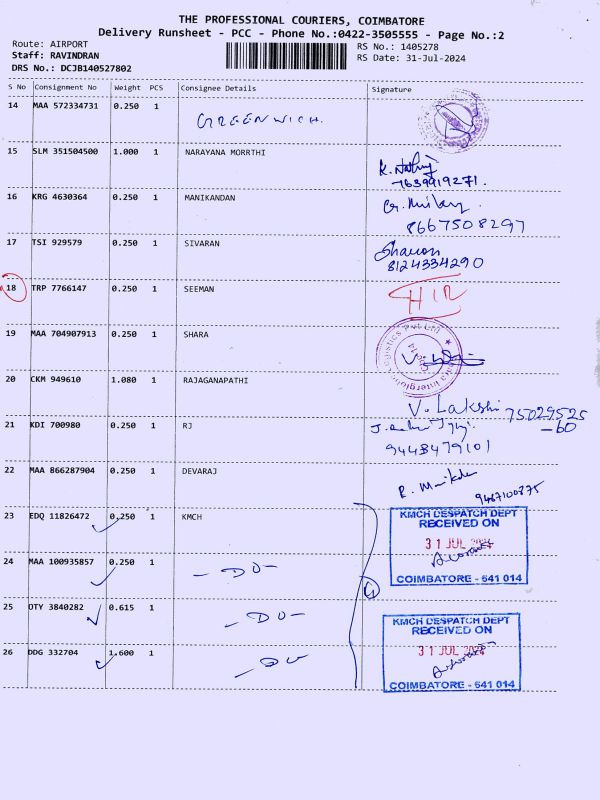 THE PROFESSIONAL COURIERS, COIMBATORE
Delivery Runsheet - PCC - Phone No.:0422-3505555 - Page No.:2
Route: AIRPORT RS No.: 1405278
Staff: RAVINDRAN RS Date: 31-Jul-2024
DRS No.: DCJB140527802
S No Consignment No Weight PCS Consignee Details Signature
14 MAA 572334731 0.250 1 GREENWICH.
15 SLM 351504500 1.000 1 NARAYANA MORRTHI
7639919271.
16 KRG 4630364 0.250 1 MANIKANDAN
8667508297
17 TSI 929579 0.250 1 SIVARAN
8124334290
18 TRP 7766147 0.250 1 SEEMAN
19 MAA 704907913 0.250 1 SHARA
20 CKM 949610 1.080 1 RAJAGANAPATHI
V. Lakshi 75029525
-60
21 KDI 700980 0.250 1 RJ
9448479101
22 MAA 866287904 0.250 1 DEVARAJ
23 EDQ 11826472 0.250 1 KMCH
KMCH DESPATCH DEPT
RECEIVED ON
31 JUL 2024
COIMBATORE - 641 014
24 MAA 100935857 0.250 1 - DO -
25 OTY 3840282 0.615 1 - DO -
KMCH DESPATCH DEPT
RECEIVED ON
31 JUL 2024
COIMBATORE - 641 014
26 DDG 332704 1.600 1 - DO